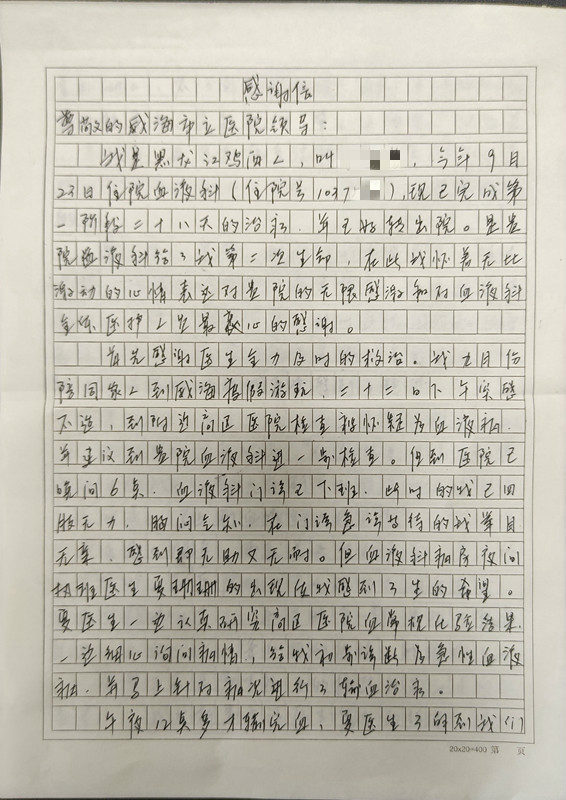 感谢信
尊敬的威海市立医院领导:
我是黑龙江鸡西人,叫 ,今年9月
23日住院血液科(住院号1037 ),现已完成第
一阶段二十八天的治疗,并已好转出院。是贵
院血液科给了我第二次生命,在此我怀着无比
激动的心情表达对贵院的无限感激和对血液科
全体医护人员最衷心的感谢。
首先感谢医生全力及时的救治。我九月份
陪同家人到威海度假游玩,二十二日下午突感
不适,到附近高区医院检查被怀疑为血液病,
并建议到贵院血液科进一步检查。但到医院已
晚间6点,血液科门诊已下班,此时的我已四
肢无力,胸闷气短,在门诊急诊等待的我举目
无亲,感到即无助又无奈。但血液科病房夜间
执班医生夏珊珊的出现使我感到了生的希望。
夏医生一边认真研究高区医院血常规化验结果,
一边细心询问病情,给我初步诊断为急性血液
病,并马上针对病况进行了输血治疗。
午夜12点多才输完血,夏医生又回到我们
20x20=400 第 页